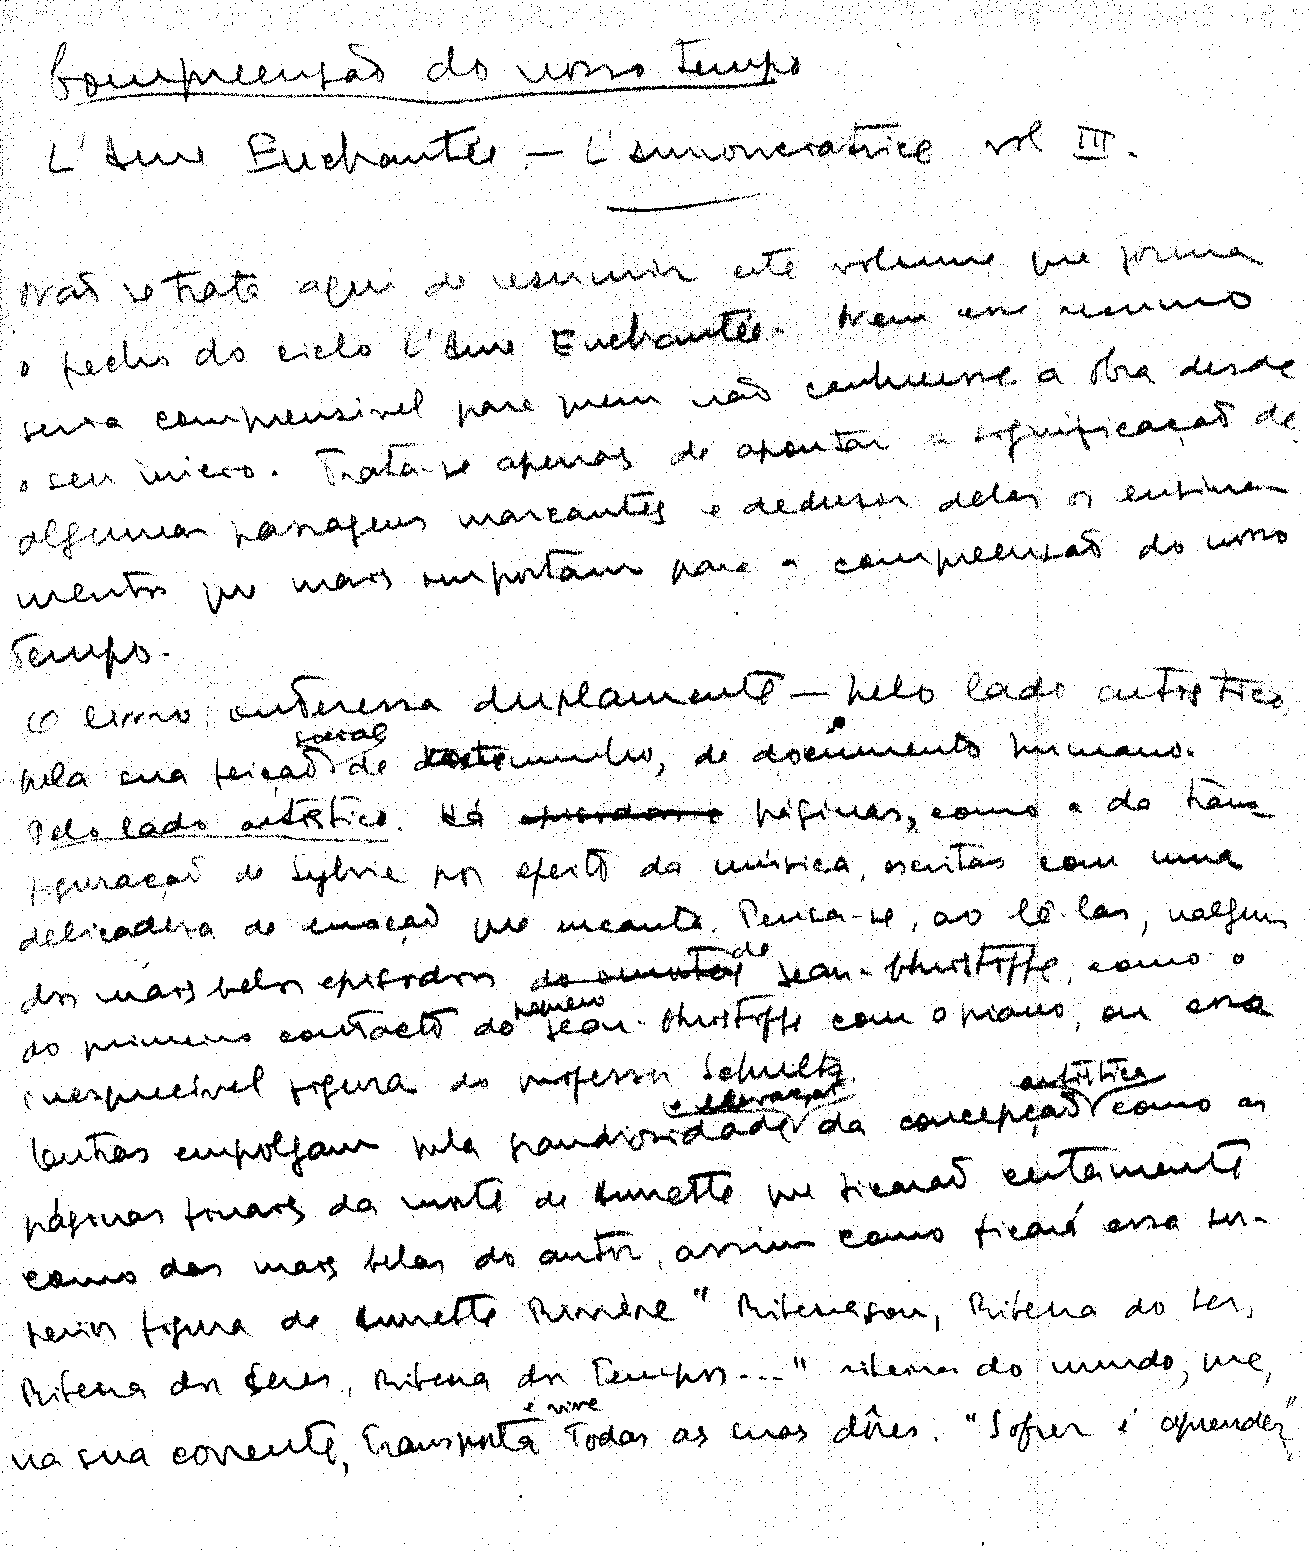 Compreensão do nosso tempo
L'Âme Enchantée – L'Annonciatrice vol III.
Não se trata aqui de resumir este volume que forma
o fecho do ciclo L'Âme Enchantée. Nem esse resumo
seria comprensivel para quem não conhecesse a obra desde
o seu inicio. Trata-se apenas de apontar a significação de
algumas passagens marcantes e deduzir delas os ensina-
mentos que mais importam para a compreensão do nosso
tempo.
O livro interessa duplamente – pelo lado artistico,
pela sua feição social de testemunho, de documento humano.
Pelo lado artistico. Há páginas, como a da trans-
figuração de Sylvie por efeito da música, escritas com uma
delicadeza de emoção que encanta. Pensa-se, ao lê-las, nalguns
dos mais belos episodios de Jean-Christophe, como o
do primeiro contacto do pequeno Jean-Christophe com o piano, ou essa
inesquecível figura do professor Schultz.
Outras empolgam pela grandiosidade e elevação da concepção artística como as
páginas finais da morte de Annette que ficarão certamente
como das mais belas do autor, assim como ficará essa su-
perior figura de Annette Rivière "Riberaçon, Ribeira do Ser,
Ribeira dos Seres, Ribeira dos Tempos..." ribeira do mundo, que,
na sua corrente, transporta e vive todas as suas dôres. "Sofrer é aprender"